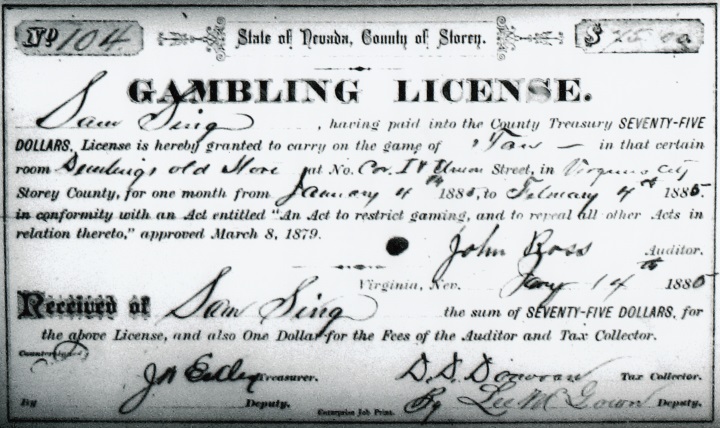 No 104 State of Nevada, County of Storey. $ 75.00
GAMBLING LICENSE.
Sam Sing, having paid into the County Treasury SEVENTY-FIVE
DOLLARS, License is hereby granted to carry on the game of "Tan" in that certain
room old Store at No. Cor. I & Union Street, in Virginia City
Storey County, for one month from January 4th 1885, to February 4th 1885.
in conformity with an Act entitled "An Act to restrict gaming, and to repeal all other Acts in
relation thereto," approved March 8, 1879.
John Ross Auditor.
Virginia, Nev. Jany 14th 1885
Received of Sam Sing the sum of SEVENTY-FIVE DOLLARS, for
the above License, and also One Dollar for the Fees of the Auditor and Tax Collector.
Countersigned
Treasurer. D. S. Donovan Tax Collector.
By Deputy. By Lee McGown Deputy.
Enterprise Job Print.